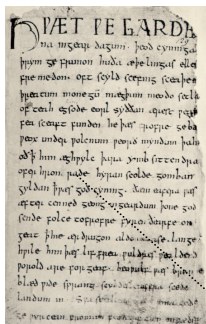 HǷÆT ǷE GARDE
na ingear dagum. þeod cyninga
þrym ge frunon huða æþelingas elle
fremedon. oft scyld scefing sceaþe
þreatum monegū mægþum meodo setla
of teah egsode eorl syððan ærest ƿear
fea sceaft funden he þæs frofre geba
ƿeox under ƿolcnum ƿeorð myndum þah
oð ꝥ him æghƿylc þara ymb sittendra
ofer hron rade hyran scolde gomban
gyldan ꝥ ƿæs god cyning. ðæm eafera ƿæs
æfter cenned geong in geardum þone god
sende folce tofrofre fyren ðearfe on
geat ꝥ hie ær drugon aldor ase. lange
hƿile him þæs lif frea ƿuldres ƿealdend
ƿorold are for geaf. beoƿulf ƿæs breme
blæd ƿide sprang scyldes eafera scede
landum in. Sƿa sceal gode
ge ƿyrcean fromum feoh giftum